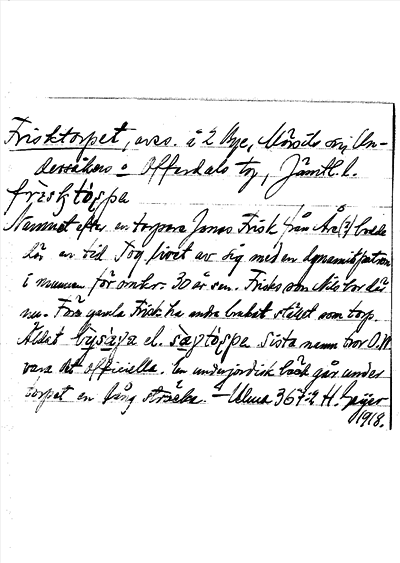 Frisktorpet, avs. å 2 Bye, Mörsils sn, Un-
dersåkers o Offerdals tg, Jämtl. l.
frisktǫrpa
Namnet efter en torpare Jonas Frisk från Åre (?) bodde
där en tid. Tog livet av sig med en dynamitpatron
i munnen för omkr. 30 år sen. Frisks son Nils bor där
nu. Före gamla Frisk ha andra brukat stället som torp.
Äldst el. sista namn tror O.W.
vara det officiella. En underjordisk bäck går under
torpet en lång sträcka. – Ulma 367:2 H. Geijer
1918.